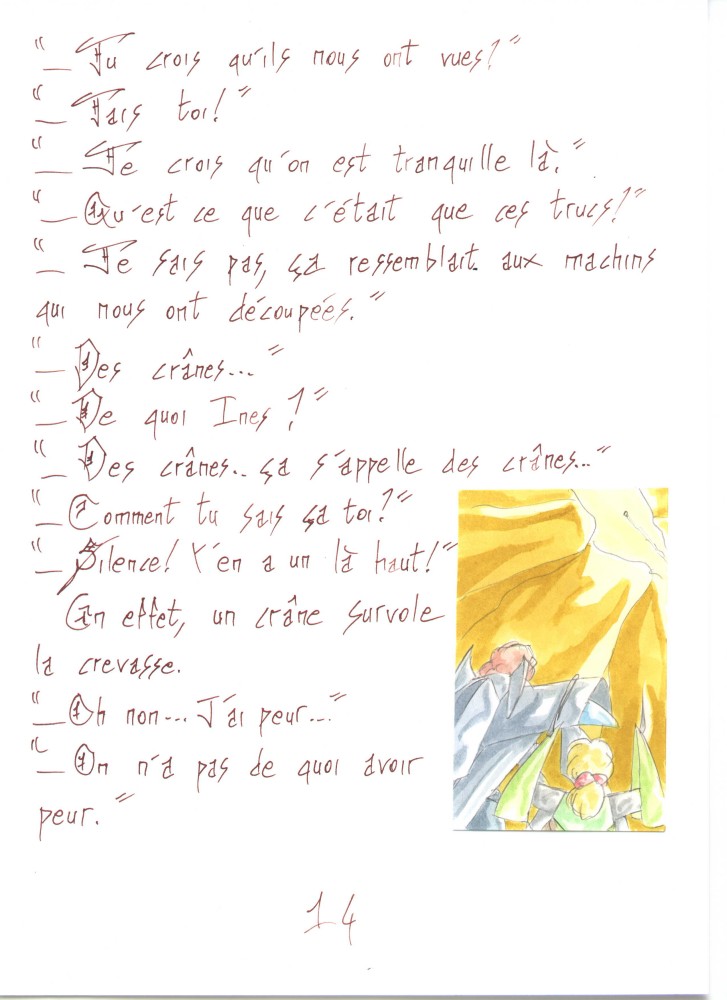 "_ Tu crois qu'ils nous ont vues?"
"_ Tais toi!"
"_ Je crois qu'on est tranquille là."
"_ Qu'est ce que c'était que ces trucs?"
"_ Je sais pas, ça ressemblait aux machins
qui nous ont découpées."
"_ Des crânes..."
"_ De quoi Ines ?"
"_ Des crânes.. ça s'appelle des crânes..."
"_ Comment tu sais ça toi?"
"_ Silence! Y'en a un là haut!"
En effet, un crâne survole
la crevasse.
"_ Oh non... J'ai peur..."
"_ On n'a pas de quoi avoir
peur."
14